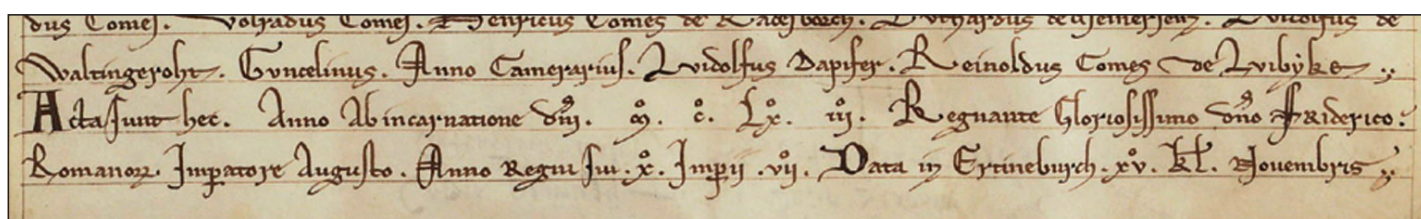 dus Comes. Volradus Comes. Henricus Comes de Racesborch. Luthardus de Meinersem. Luidolfus de
Waltingeroht. Guncelinus. Anno Camerarius. Luidolfus Dapifer. Reinoldus Comes de Lvibyke
Acta sunt hec. Anno Ab incarnatione dni. mº. cº. Lxº. iiiº. Regnante Gloriosissimo dno Friderico.
Romanorꝝ Impatore Augusto. Anno Regni sui. xº. Impii .viiº. Data in Ertineburch. xvº. kl. Novembris